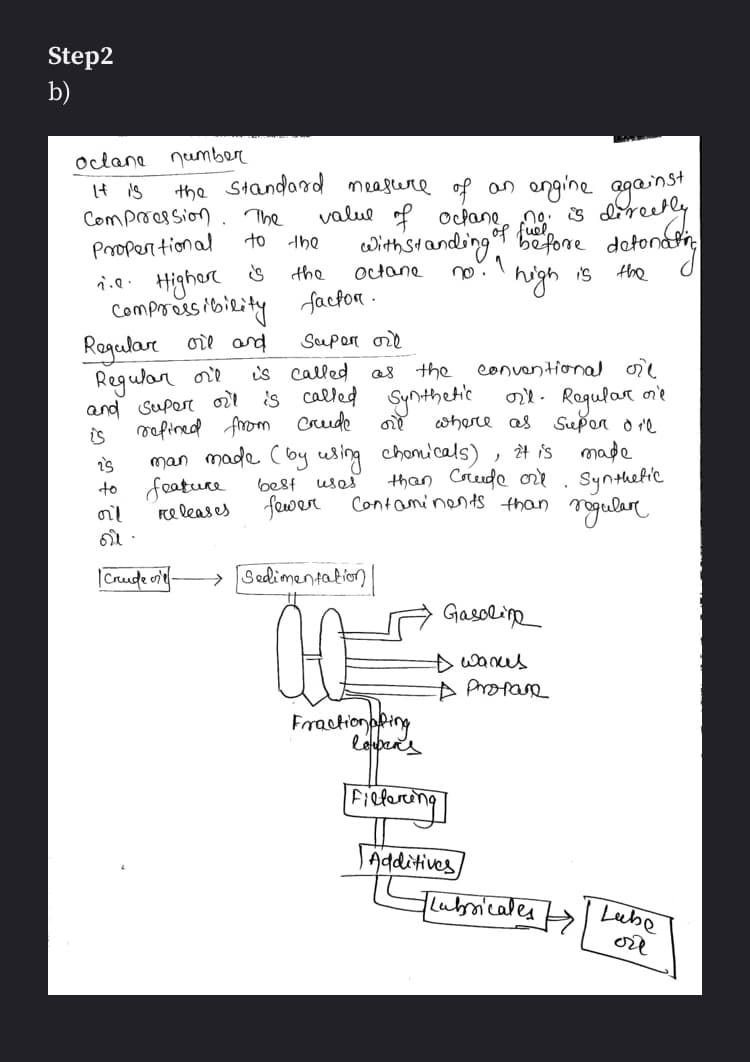 Step2
b)
octane number
It is the standard measure of an engine against
Compression. The value of octane no. is directly
Propertional to the withstanding of fuel before detonating
i.e. Higher is the octane no. high is the
compressibility factor.
Regular oil and Super oil
Regular oil is called as the conventional oil
and super oil is called synthetic oil. Regular oil
is refined from crude oil where as Super oil
is man made (by using chemicals), it is made
to feature best uses than Crude oil. Synthetic
oil releases fewer Contaminents than regular
oil.
Crude oil Sedimentation
Gasoline
waxes
Propane
Fractionating
towers
Filtering
Additives
Lubricates Lube
oil